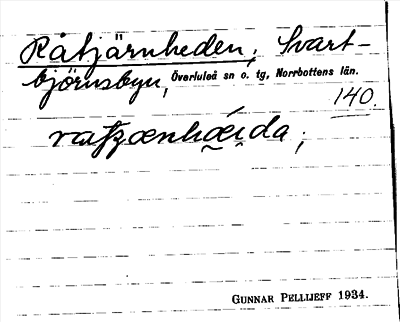 Råtjärnheden; Svart-
björnsbyn, Överluleå sn o. tg, Norrbottens län.
140.
ratjænhǽi̯da;
GUNNAR PELLIJEFF 1934.